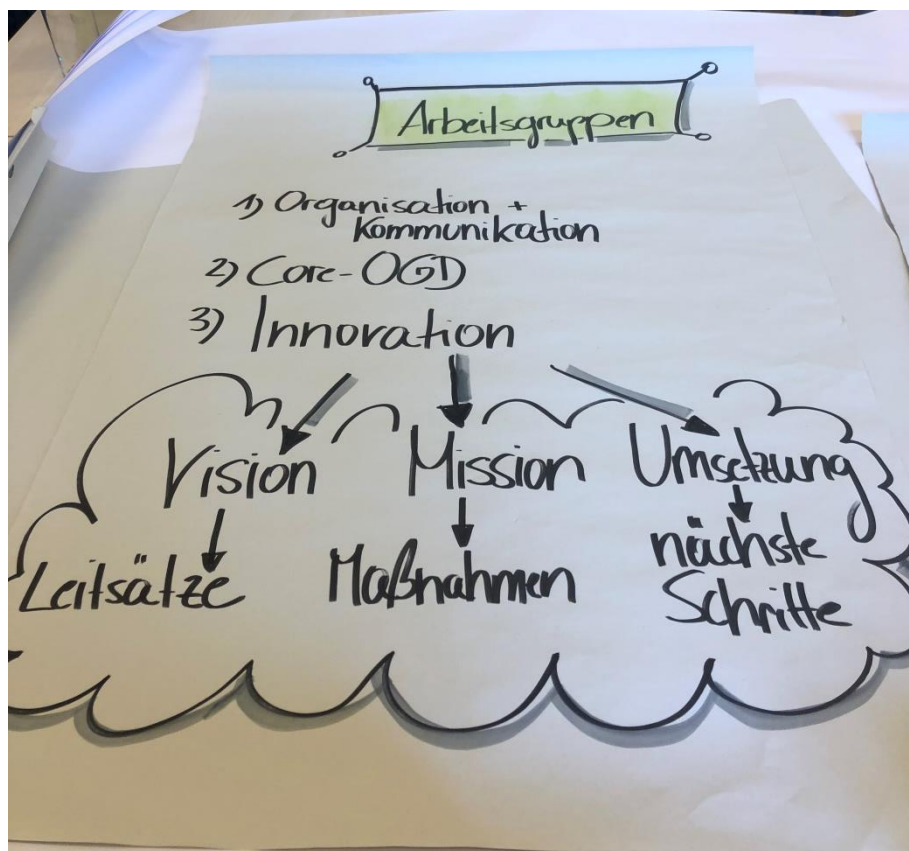 Arbeitsgruppen
1) Organisation +
Kommunikation
2) Core-OGD
3) Innovation
Vision Mission Umsetzung
Leitsätze Maßnahmen nächste
Schritte